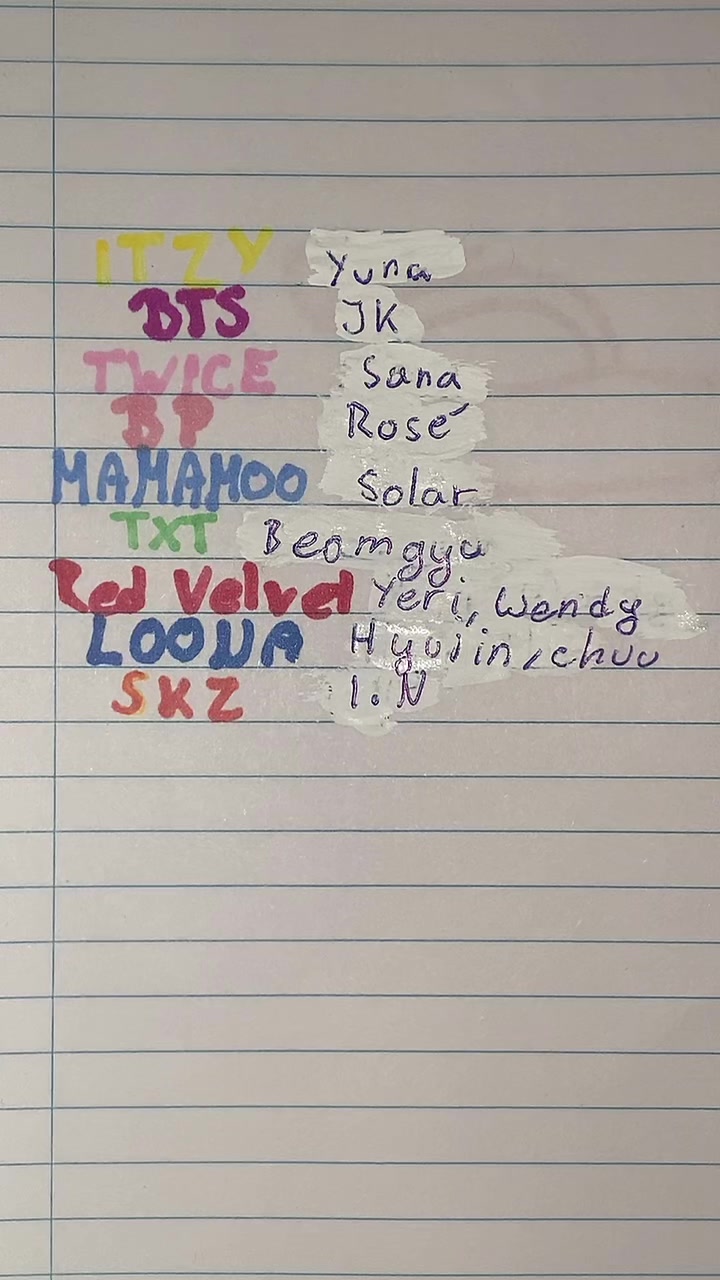 ITZY Yuna
BTS JK
TWICE Sana
BP Rosé
MAMAMOO Solar
TXT Beomgyu
Red Velvet Yeri, Wendy
LOONA Hyojin, chuu
SKZ I.N